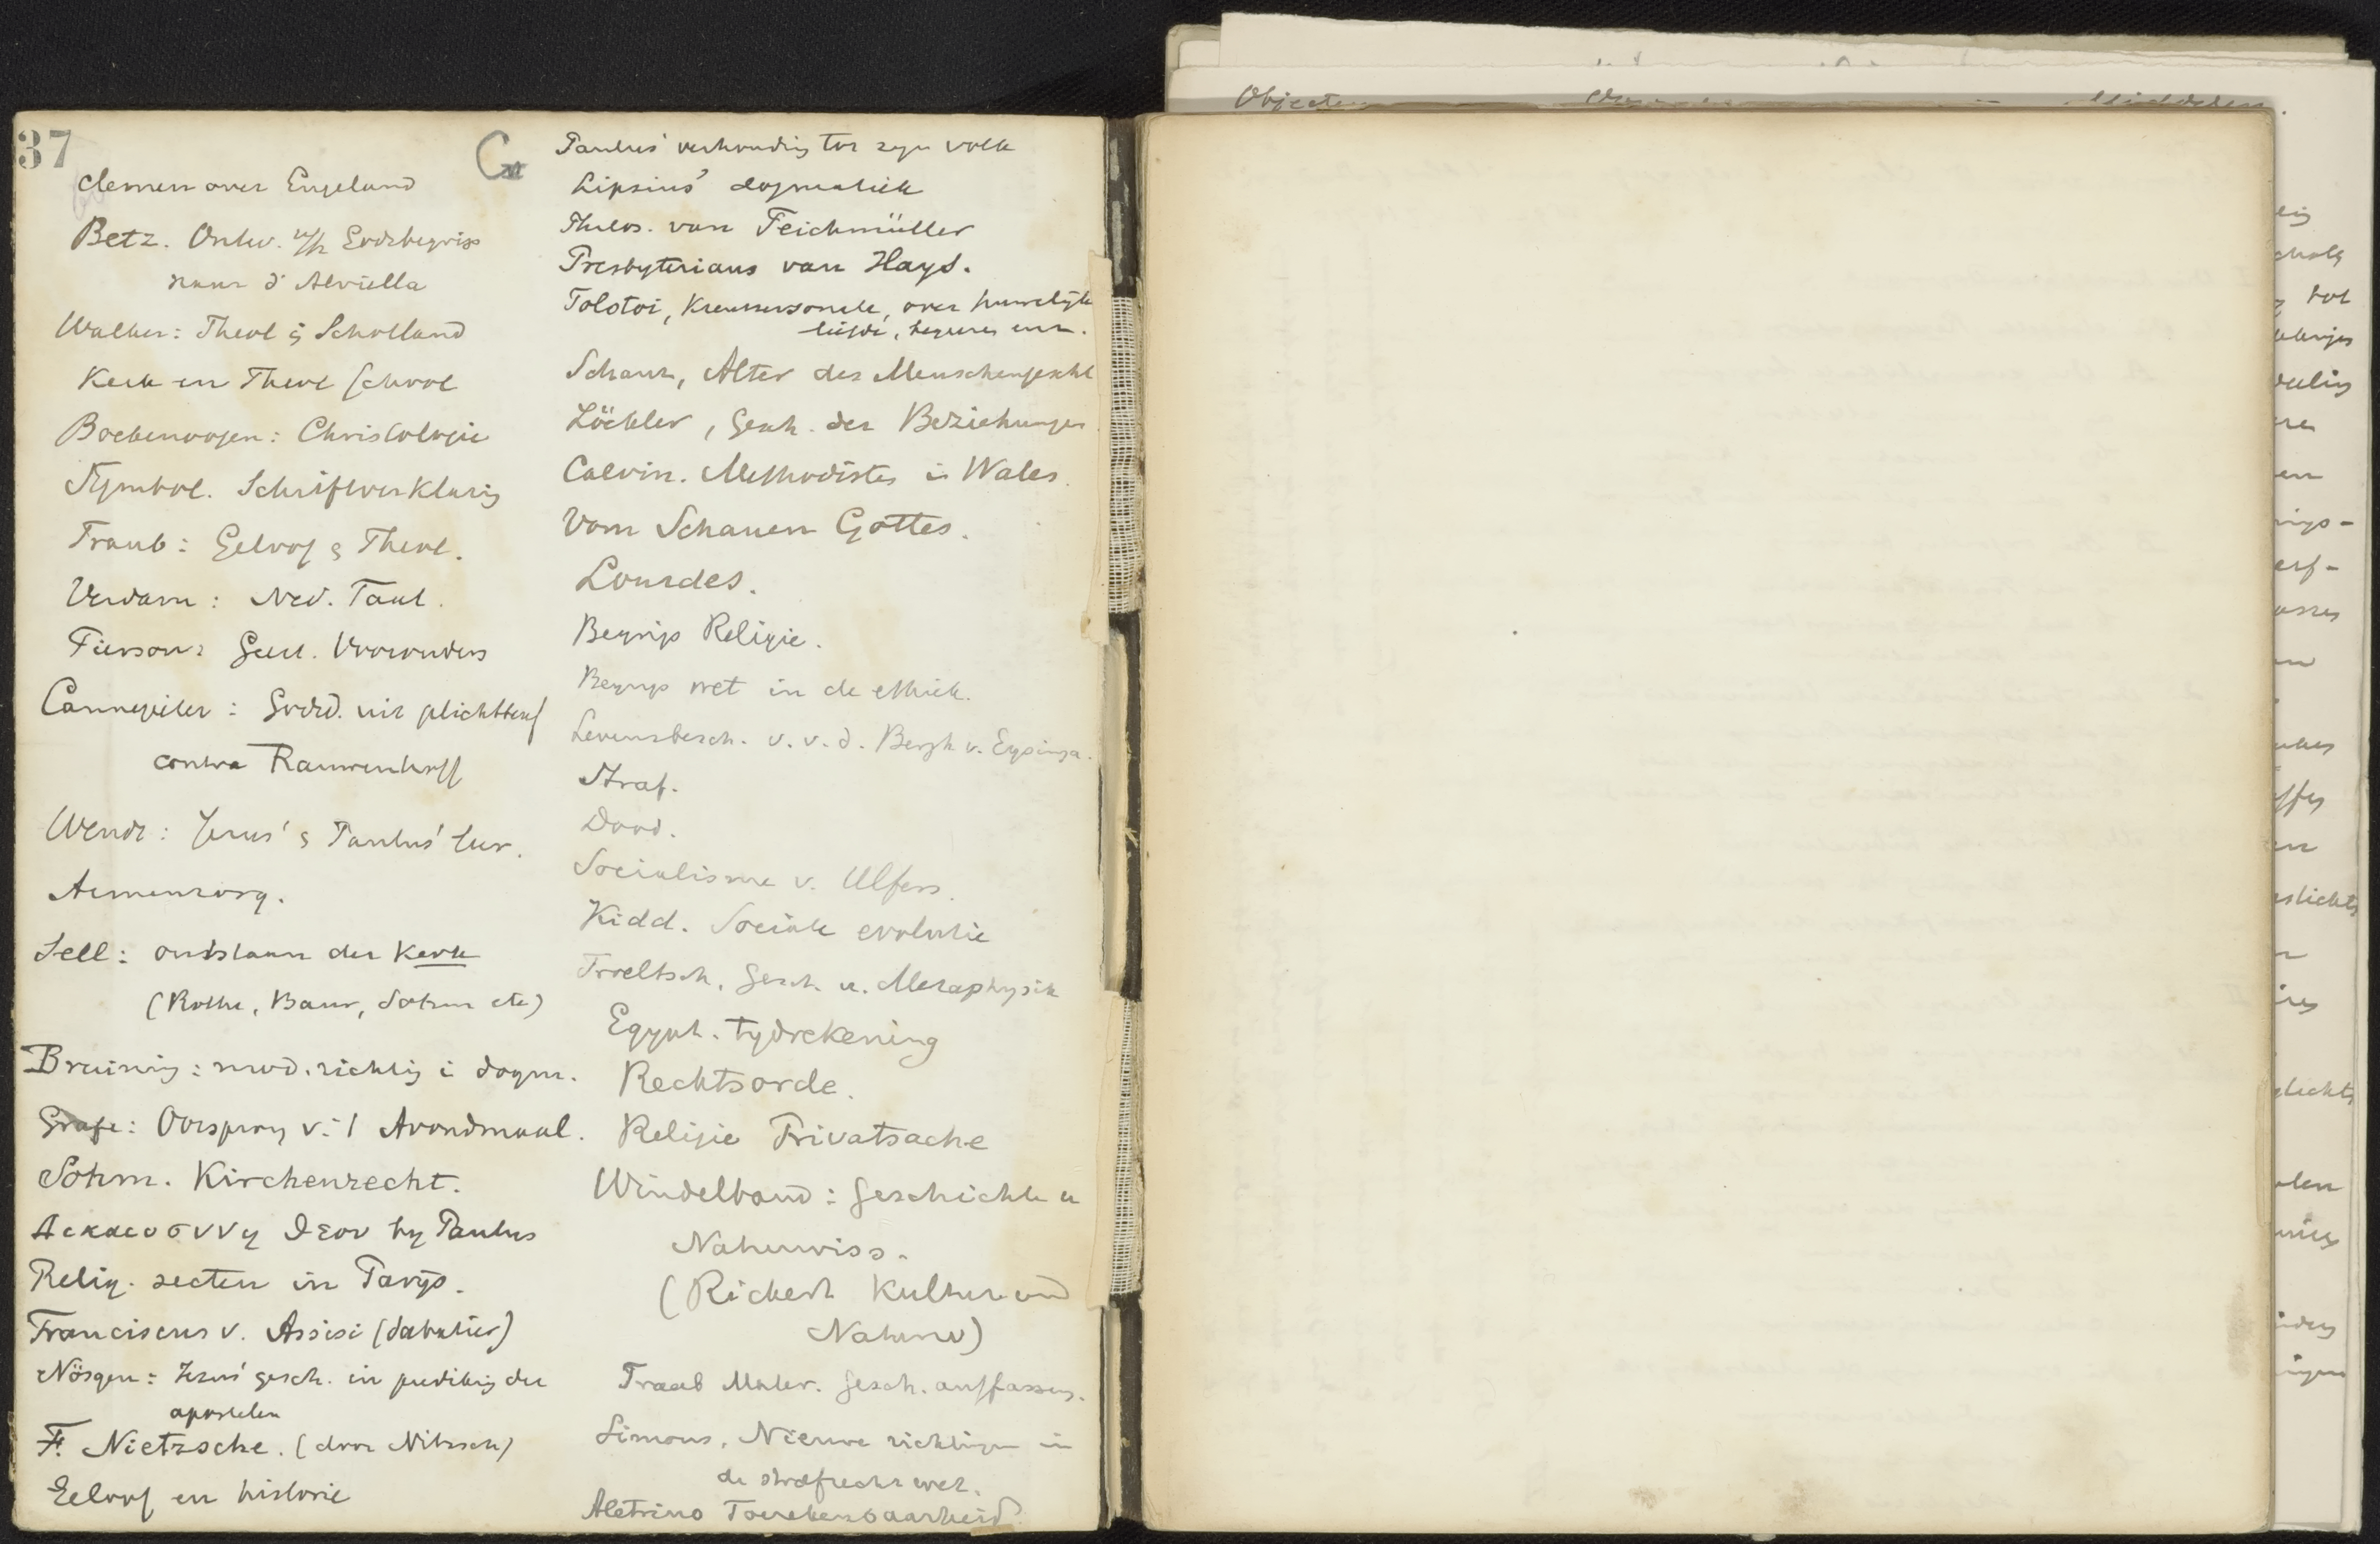 37
G
Clemen over Engeland
Betz. Ontw. v/h Godsbegrip
naar d'Alviella
Walker: Theol. Schotland
Kerk en Theol School
Boekenoogen: Christologie
Symbol. Schriftverklaring
Traub: Geloof & Theol.
Verdam: Ned. Taal.
Pierson: Geest. Voorouders
Cannegieter: Godsd. uit plichtbesef
contra Rauwenhoff
Wendt: Jezus' & Paulus' leer.
Armenzorg.
Sell: ontstaan der Kerk
(Rothe, Baur, Sohm etc)
Bruining: mod. richting i dogm.
Grafe: Oorsprong v. 't Avondmaal.
Sohm. Kirchenrecht.
Δικαιοσυνη θεου by Paulus
Relig. secten in Parijs.
Franciscus v. Assisi (Sabatier)
Nösgen: Jezus' gesch. in prediking der
apostelen
F. Nietzsche. (door Nitzsch)
Geloof en historie
Paulus' verhouding tot zijn volk
Lipsius' dogmatiek
Philos. van Teichmüller
Presbyterians van Hays.
Tolstoi, Kreutzersonate, over huwelijk
liefde, enz.
Schanz, Alter des Menschengeschl
Zöckler, Gesch. der Beziehungen
Calvin. Methodisten in Wales.
Vom Schauen Gottes.
Lourdes.
Begrip Religie.
Begrip wet in de ethiek.
Levensbesch. v. v. d. Bergh v. Eysinga.
Straf.
Dood.
Socialisme v. Ulfers.
Kidd. Sociale evolutie
Troeltsch, Gesch. u. Metaphysik
Egypt. tydrekening
Rechtsorde.
Religie Privatsache
Windelband: Geschichte u
Naturwiss.
(Rickert Kultur und
Naturw)
Traub Mater. Gesch. auffassung.
Simons, Nieuwe richtingen in
de strafrechtswet.
Aletrino Toerekenbaarheid.
Objecten